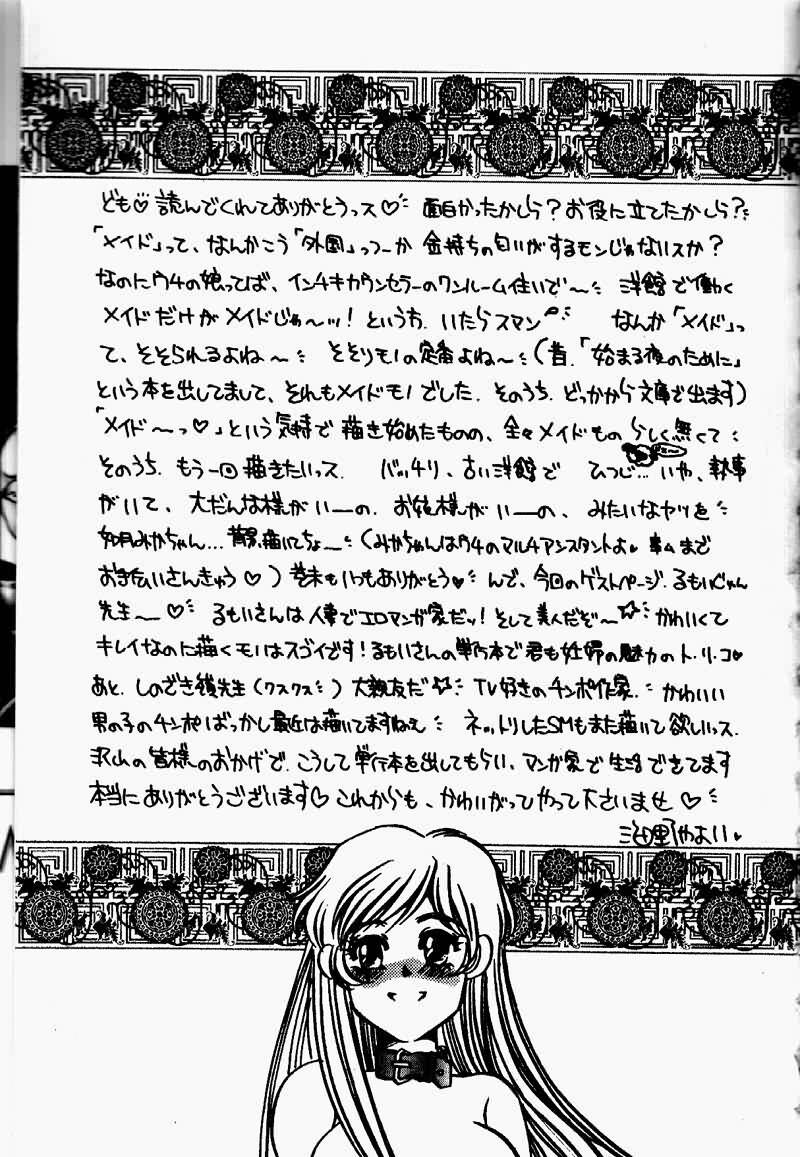 ども♡読んでくれてありがとうっス♡ 面白かったかしら?お役に立てたかしら?
「メイド」って、なんかこう「外国」っつーか 金持ちの匂いがするモンじゃないスか?
なのにウチの娘ってば、インチキカウンセラーのワンルーム住いで〜 洋館で働く
メイドだけがメイドじゃ〜ッ!というち. いたらスマン なんか「メイド」っ
て、そそられるよね〜 そそりモノの定番よね〜(昔.「始まる夜のために」
という本を出してまして、それもメイドモノでした. そのうち. どっかから文庫で出ます)
「メイド〜っ♡」という気持で描き始めたものの、全々メイドものらしく無くて
そのうち. もう一回描きたいっス. バッチリ、古い洋館で ひつじ…いや、執事
がいて、大だんな様がいーの. お姫様がいーの、みたいなヤツを
如月みかちゃん… 背景描いてちょ〜(みかちゃんはウチのマルチアシスタントよ. 事ムまで
お手伝いさんきゅう♡) 巻末もいつもありがとう♡ んで、今回のゲストページ. るもいじゅん
先生〜♡ るもいさんは人妻でエロマンガ家だッ!そして美人だぞ〜 かわいくて
キレイなのに描くモノはスゴイです!るもいさんの単行本で君も妊婦の魅力のト.リ.コ♡
あと. しのざき嶺先生(クスクス) 大親友だ TV好きのチンポ作家. かわいい
男の子のチンポばっかし最近は描いてますねえ ネットリしたSMもまた描いて欲しいっス.
沢山の皆様のおかげで. こうして単行本を出してもらい、マンガ家で生活できてます
本当にありがとうございます♡これからも、かわいがってやって下さいませ♡
海野やよい